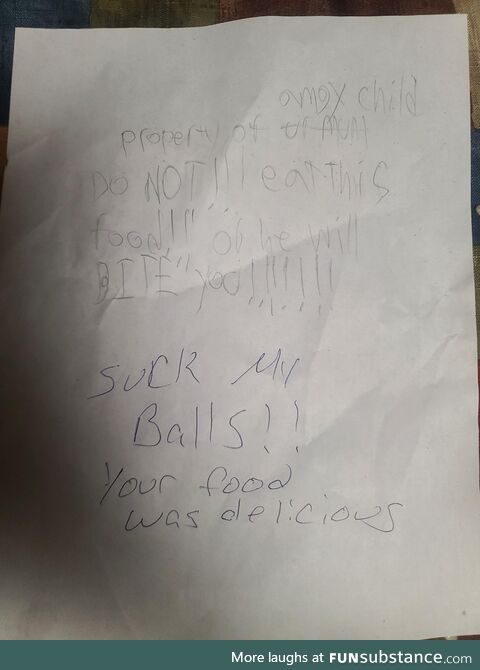 child
property of
DO NOT!!! eat this
food!!! or he will
BITE you!!!!!!!
SUCK MY
Balls!!
Your food
was delicious
More laughs at FUNsubstance.com